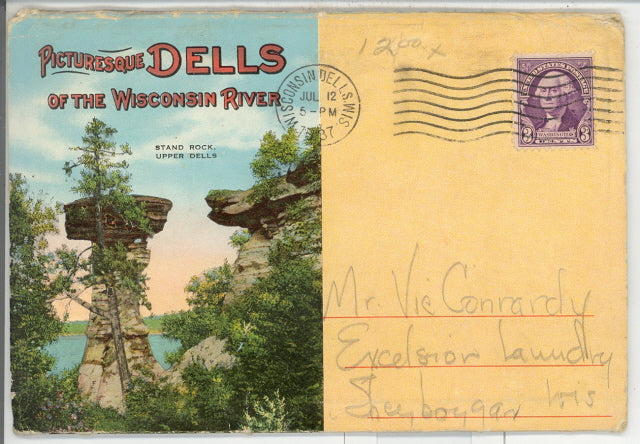 PICTURESQUE DELLS
OF THE WISCONSIN RIVER
STAND ROCK,
UPPER DELLS
WISCONSIN DELLS, WIS.
JUL 12
5-PM
37
1200 x
UNITED STATES POSTAGE
WASHINGTON
3 3
Mr. Vic Conrardy
Excelsior Laundry
Sheyboygan Wis